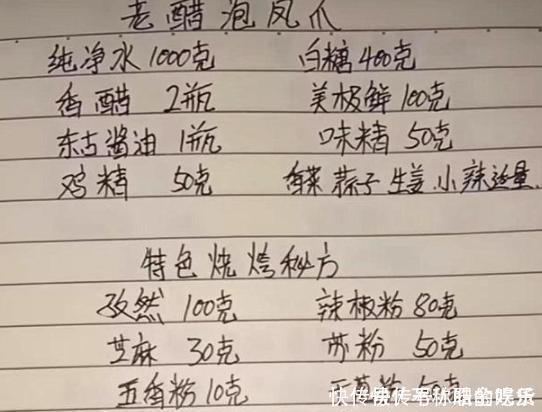 老醋泡凤爪
纯净水 1000克 白糖 400克
香醋 2瓶 美极鲜 100克
东古酱油 1瓶 味精 50克
鸡精 50克 香菜 蒜子 生姜 小辣适量.
特色烧烤秘方
孜然 100克 辣椒粉 80克
芝麻 30克 苏粉 50克
五香粉 10克